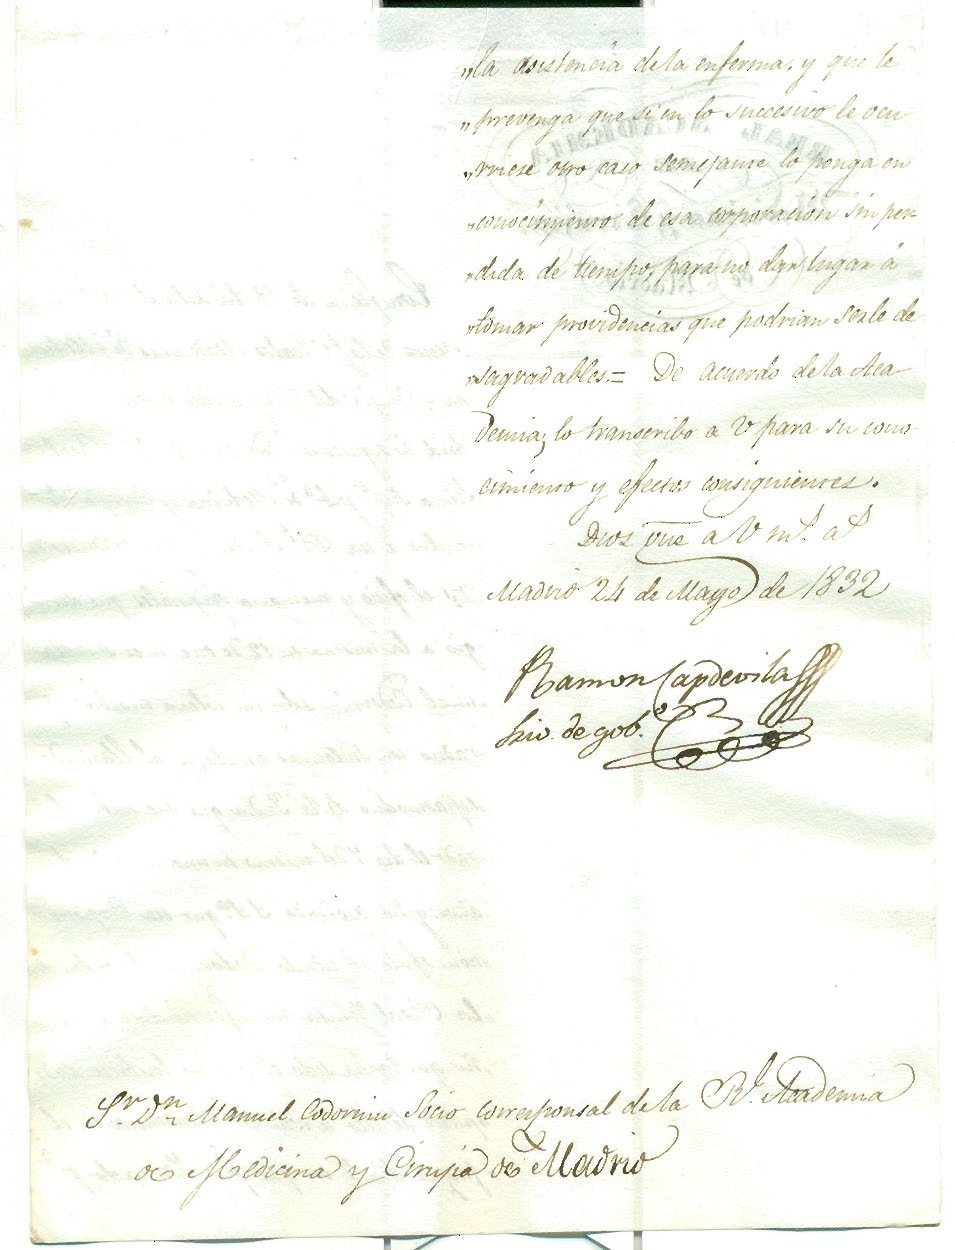 "la asistencia de la enferma, y que le
"prevenga que si en lo succesivo le ocu
"rriese otro caso semejante lo ponga en
"conocimiento de esa corporacion sin per-
"dida de tiempo, para no dar lugar á
"tomar providencias que podrian serle de
"sagradables.= De acuerdo de la Aca-
demia, lo transcribo a V para su cono-
cimiento y efectos consiguientes.
Dios gue a V m.s a.s
Madrid 24 de Mayo de 1832
Ramon Capdevila
Srio. de gob.o
Sr. Dn. Manuel Codorniu Socio corresponsal de la Rl. Academia
de Medicina y Cirugia de Madrid